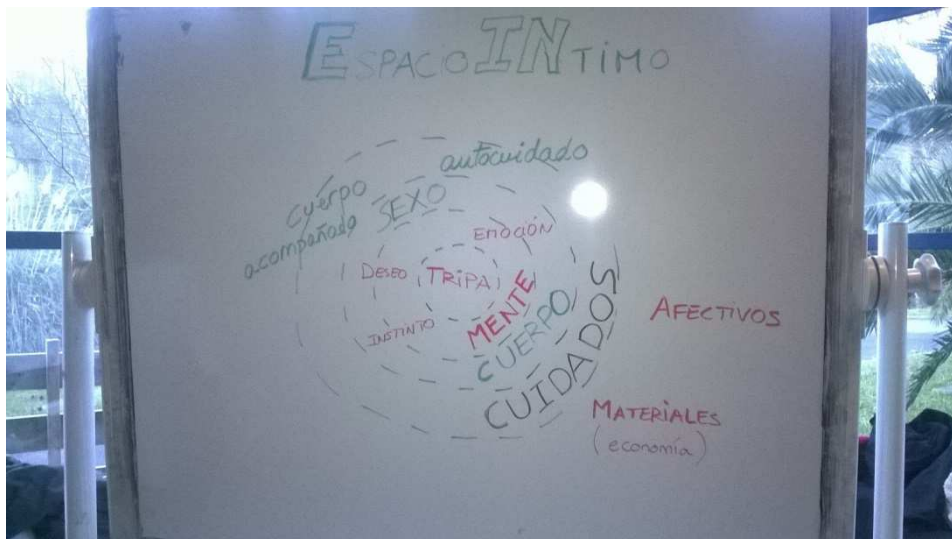 ESPACIO INTIMO
autocuidado
cuerpo
acompañado
SEXO
EMOCIÓN
DESEO
TRIPA
INSTINTO
MENTE
CUERPO
CUIDADOS
AFECTIVOS
MATERIALES
(economía)